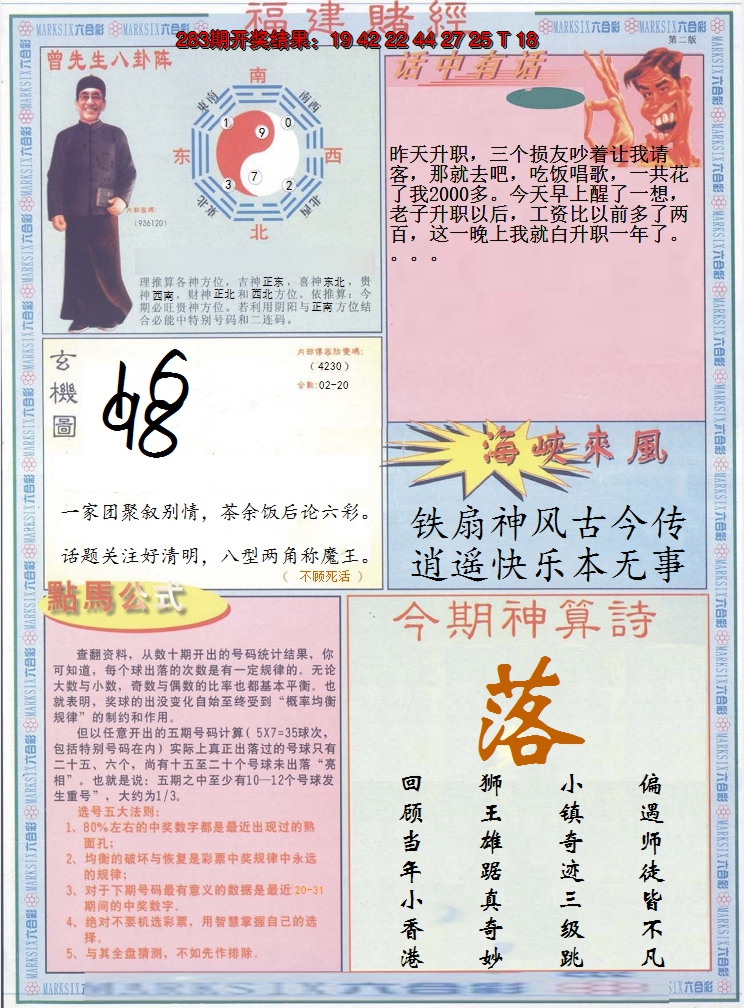 福建賭經
283期开奖结果：19 42 22 44 27 25 T 18
第二版
MARKSIX六合彩
曾先生八卦阵
南
东南
西南
东
西
东北
西北
北
1
9
0
3
7
2
内部密碼:
(936120)
理推算各神方位，吉神正东，喜神东北，贵
神西南，财神正北和西北方位。依推算：今
期必旺贵神方位。若利用阴阳与正南方位结
合必能中特别号码和二连码。
话中有话
昨天升职，三个损友吵着让我请
客，那就去吧，吃饭唱歌，一共花
了我2000多。今天早上醒了一想，
老子升职以后，工资比以前多了两
百，这一晚上我就白升职一年了。
。。。。
玄機圖
内部傳密防變碼:
(4230)
合數:02-20
一家团聚叙别情，茶余饭后论六彩。
话题关注好清明，八型两角称魔王。
（ 不顾死活 ）
海峡來風
铁扇神风古今传
逍遥快乐本无事
點馬公式
查翻资料，从数十期开出的号码统计结果，你
可知道，每个球出落的次数是有一定规律的。无论
大数与小数，奇数与偶数的比率也都基本平衡。也
就表明，奖球的出没变化自始至终受到“概率均衡
规律”的制约和作用。
但以任意开出的五期号码计算( 5X7=35球次，
包括特别号码在内) 实际上真正出落过的号球只有
二十五、六个，尚有十五至二十个号球未出落“亮
相”。也就是说：五期之中至少有10—12个号球发
生重号”，大约为1/3。
选号五大法则:
1、80%左右的中奖数字都是最近出现过的熟
面孔;
2、均衡的破坏与恢复是彩票中奖规律中永远
的规律;
3、对于下期号码最有意义的数据是最近20-31
期间的中奖数字。
4、绝对不要机选彩票，用智慧掌握自己的选
择。
5、与其全盘猜测，不如先作排除。
今期神算詩
落
偏遇师徒皆不凡
小镇奇迹三级跳
狮王雄踞真奇妙
回顾当年小香港